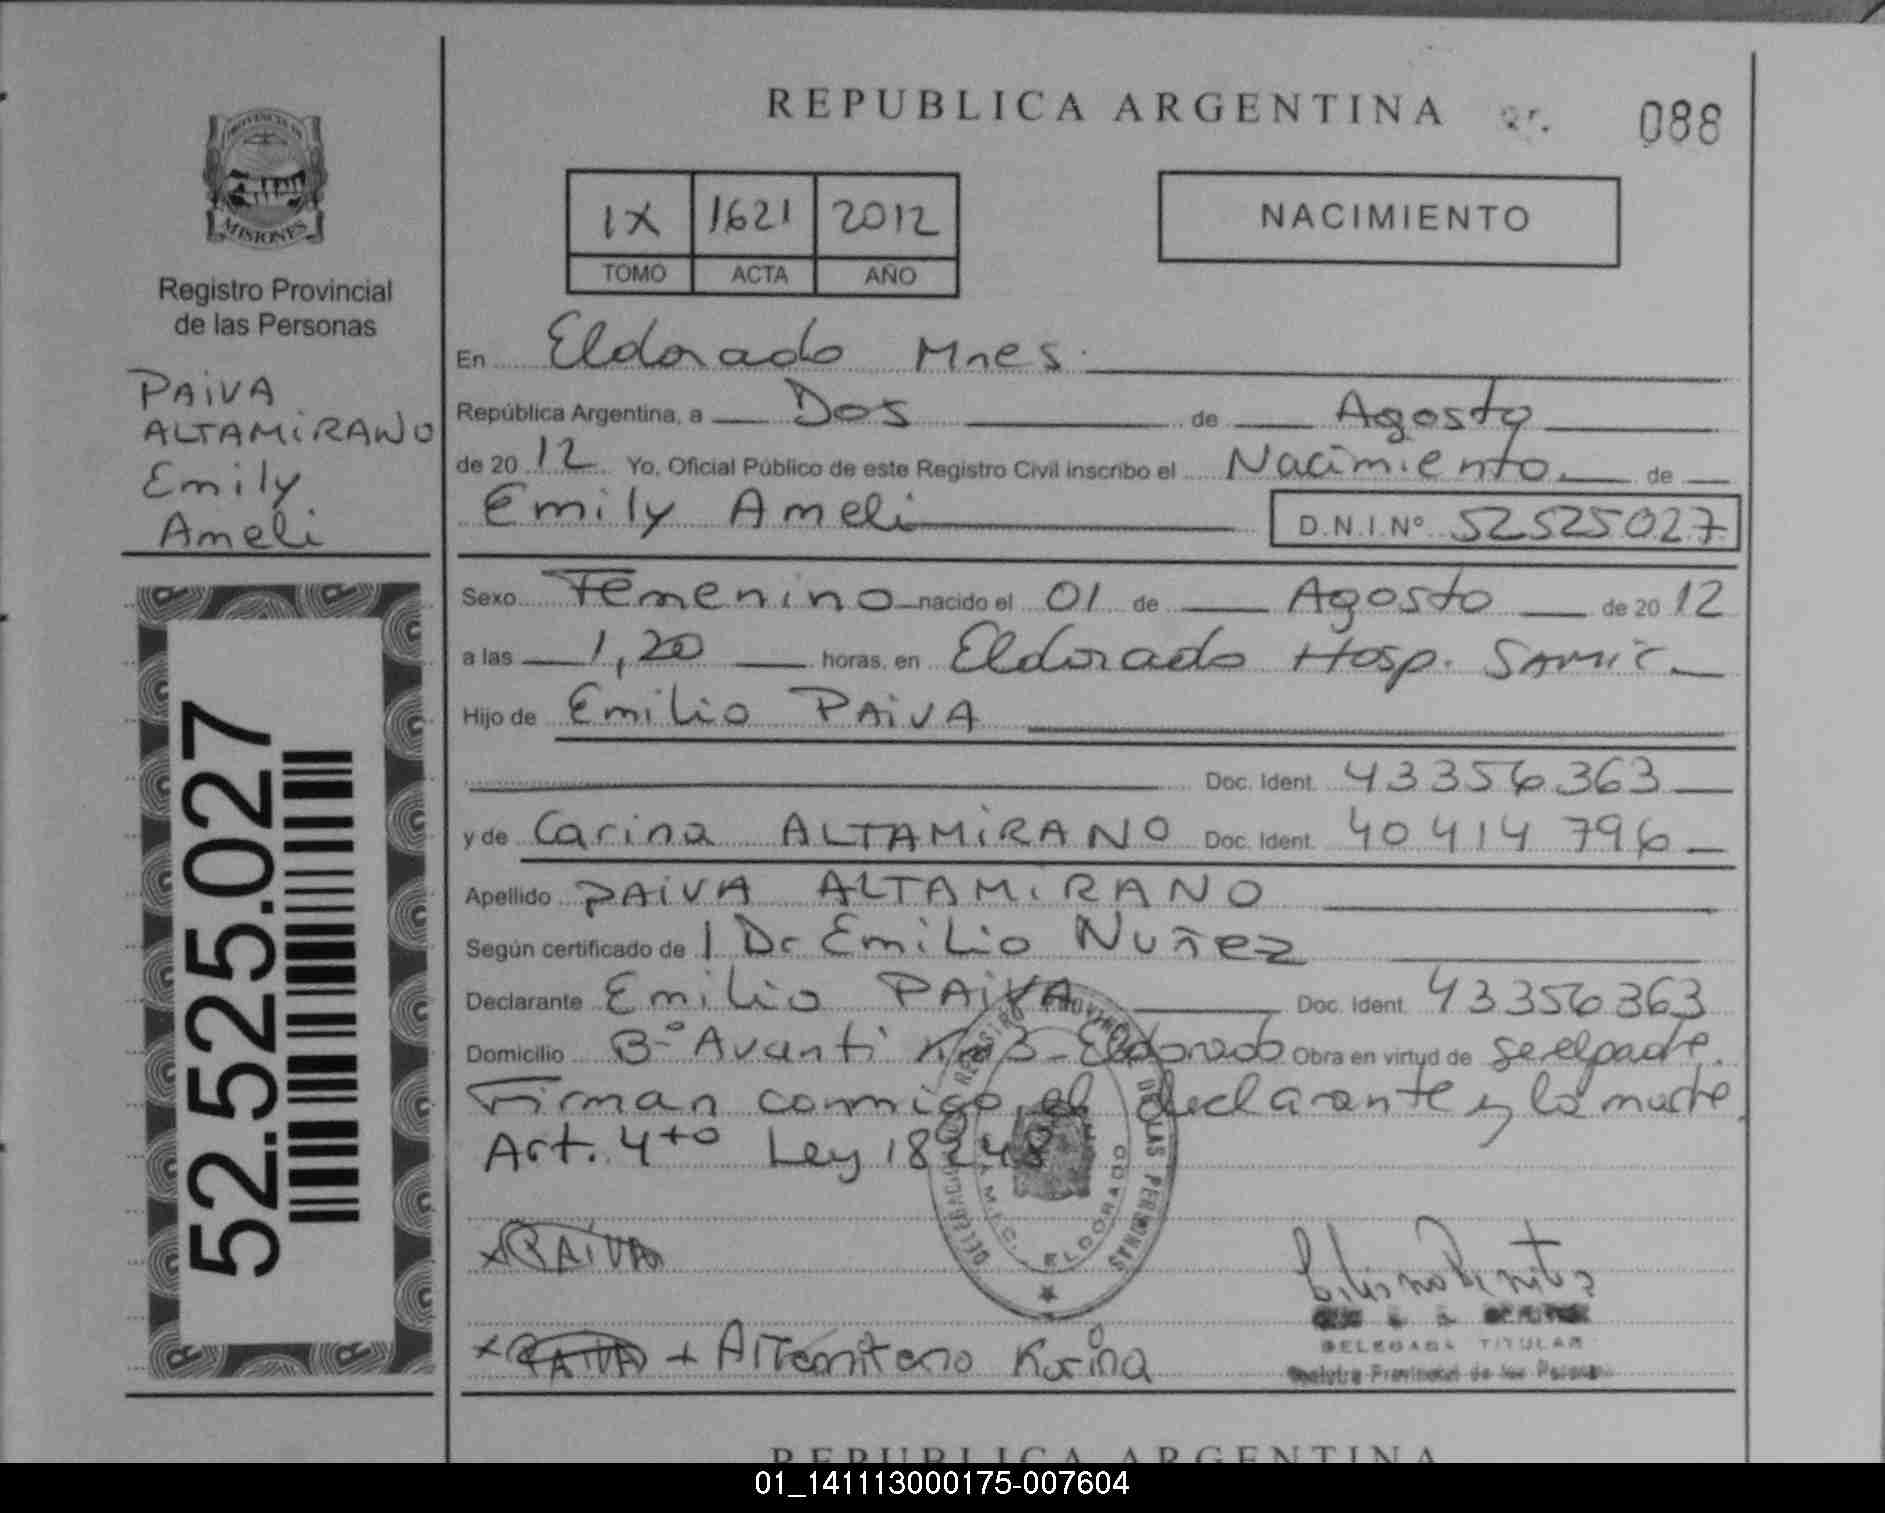 REPUBLICA ARGENTINA
088
PROVINCIA DE
MISIONES
Registro Provincial
de las Personas
PAIVA
ALTAMIRANO
Emily
Ameli
52.525.027
IX 1621 2012
TOMO ACTA AÑO
NACIMIENTO
En Eldorado Mnes.
República Argentina, a Dos de Agosto
de 20 12 Yo, Oficial Público de este Registro Civil inscribo el Nacimiento de
Emily Ameli D.N.I.Nº 52525027
Sexo Femenino nacido el 01 de Agosto de 20 12
a las 1,20 horas, en Eldorado Hosp. SAMIC
Hijo de Emilio PAIVA
Doc. Ident. 43356363
y de Carina ALTAMIRANO Doc. Ident. 40414796
Apellido PAIVA ALTAMIRANO
Según certificado de 1 Dr Emilio Nuñez
Declarante Emilio PAIVA Doc. Ident. 43356363
Domicilio Bº Avanti Km 3 - Eldorado Obra en virtud de se el padre.
Firman conmigo el declarante y la madre.
Art. 4to Ley 18248
REGISTRO PROVINCIAL DE LAS PERSONAS
DELEGACION
ELDORADO
x PAIVA
x PAIVA + Altamirano Karina
DELEGADA TITULAR
Registro Provincial de las Personas
REPUBLICA ARGENTINA
01_141113000175-007604